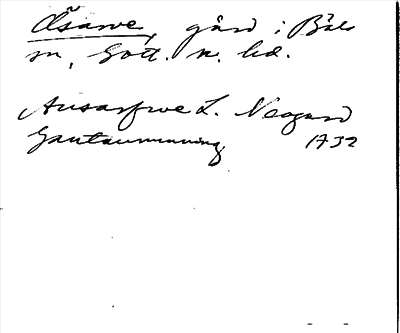 Åsarve, gård i Bäls
sn, Gott. n. hd.
Ausarfwe L. Neogard
Gautauminning 1732